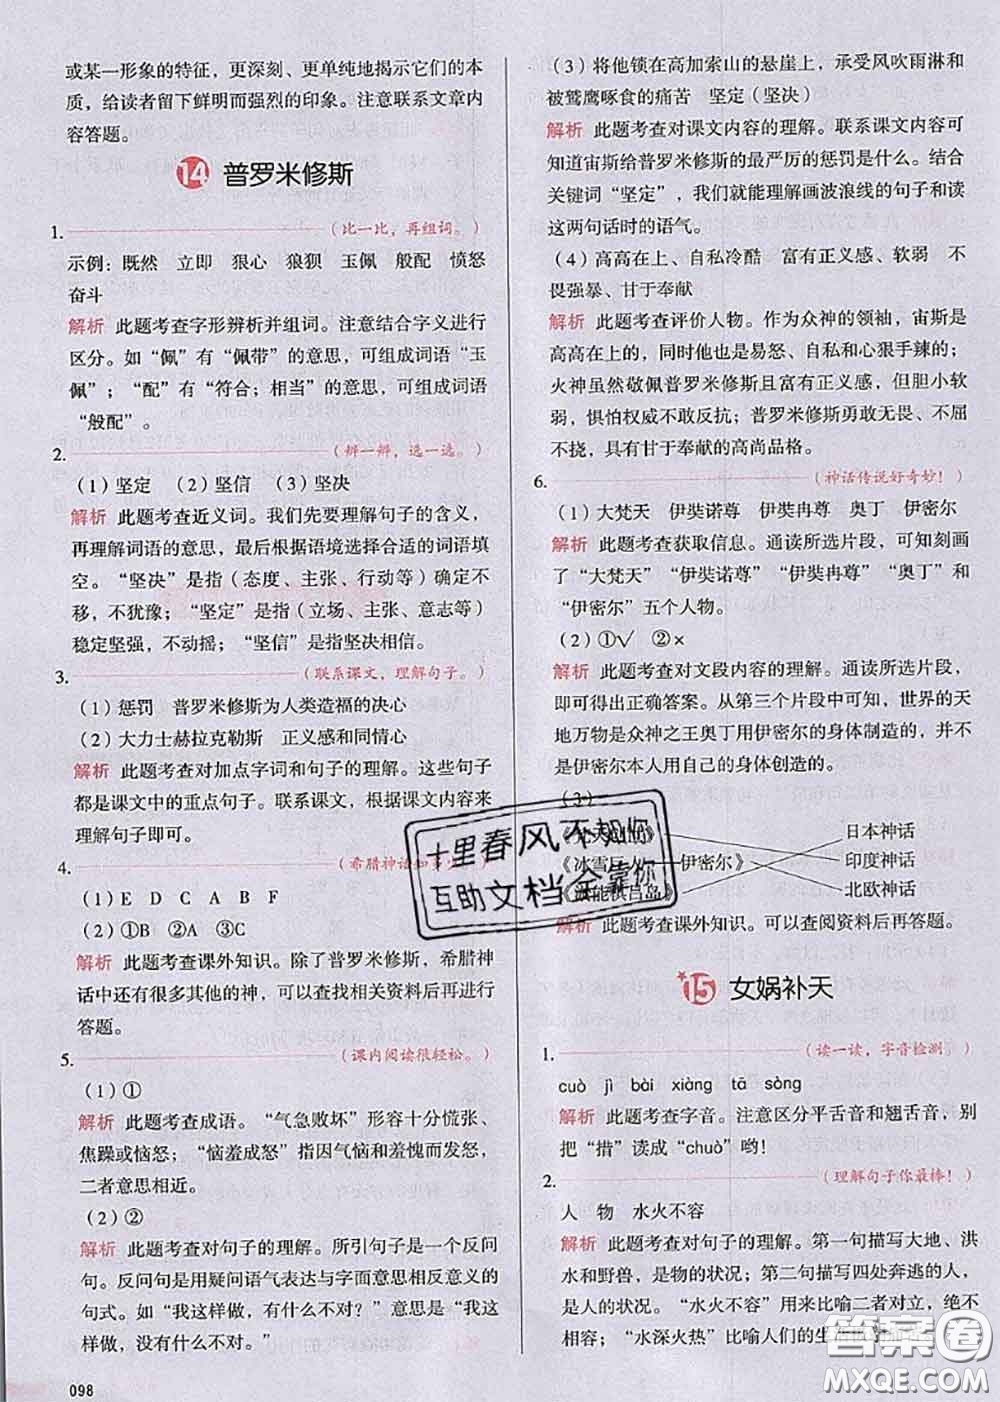 或某一形象的特征，更深刻、更单纯地揭示它们的本
质，给读者留下鲜明而强烈的印象。注意联系文章内
容答题。
14 普罗米修斯
1. （比一比，再组词。）
示例：既然 立即 狠心 狼狈 玉佩 般配 愤怒
奋斗
解析 此题考查字形辨析并组词。注意结合字义进行
区分。如“佩”有“佩带”的意思，可组成词语“玉
佩”；“配”有“符合；相当”的意思，可组成词语
“般配”。
2. （辨一辨，选一选。）
（1）坚定 （2）坚信 （3）坚决
解析 此题考查近义词。我们先要理解句子的含义，
再理解词语的意思，最后根据语境选择合适的词语填
空。“坚决”是指（态度、主张、行动等）确定不
移，不犹豫；“坚定”是指（立场、主张、意志等）
稳定坚强，不动摇；“坚信”是指坚决相信。
3. （联系课文，理解句子。）
（1）惩罚 普罗米修斯为人类造福的决心
（2）大力士赫拉克勒斯 正义感和同情心
解析 此题考查对加点字词和句子的理解。这些句子
都是课文中的重点句子。联系课文，根据课文内容来
理解句子即可。
4. （希腊神话知多少。）
（1）E D A C B F
（2）①B ②A ③C
解析 此题考查课外知识。除了普罗米修斯，希腊神
话中还有很多其他的神，查找相关资料后再进行
答题。
5. （课内阅读很轻松。）
（1）①
解析 此题考查成语。“气急败坏”形容十分慌张、
焦躁或恼怒；“恼羞成怒”指因气恼和羞愧而发怒，
二者意思相近。
（2）②
解析 此题考查对句子的理解。所引句子是一个反问
句。反问句是用疑问语气表达与字面意思相反意义的
句式。如“我这样做，有什么不对？”意思是“我这
样做，没有什么不对。”
098
（3）将他锁在高加索山的悬崖上，承受风吹雨淋和
被鹫鹰啄食的痛苦 坚定（坚决）
解析 此题考查对课文内容的理解。联系课文内容可
知道宙斯给普罗米修斯的最严厉的惩罚是什么。结合
关键词“坚定”，我们就能理解画波浪线的句子和读
这两句话时的语气。
（4）高高在上、自私冷酷 富有正义感、软弱 不
畏强暴、甘于奉献
解析 此题考查评价人物。作为众神的领袖，宙斯是
高高在上的，同时他也是易怒、自私和心狠手辣的；
火神虽然敬佩普罗米修斯且富有正义感，但胆小软
弱，惧怕权威不敢反抗；普罗米修斯勇敢无畏、不屈
不挠，具有甘于奉献的高尚品格。
6. （神话传说好奇妙！）
（1）大梵天 伊奘诺尊 伊奘冉尊 奥丁 伊密尔
解析 此题考查获取信息。通读所选片段，可知刻画
了“大梵天”“伊奘诺尊”“伊奘冉尊”“奥丁”和
“伊密尔”五个人物。
（2）①√ ②×
解析 此题考查对文段内容的理解。通读所选片段，
即可得出正确答案。从第三个片段中可知，世界的天
地万物是众神之王奥丁用伊密尔的身体制造的，并不
是伊密尔本人用自己的身体创造的。
（3）
日本神话
《冰雪 伊密尔》 印度神话
北欧神话
十里春风不如你
互助文档全靠你
解析 此题考查课外知识。可以查阅资料后再答题。
15 女娲补天
1. （读一读，字音检测）
cuò jì bài xiàng tā sòng
解析 此题考查字音。注意区分平舌音和翘舌音，别
把“措”读成“chuò”哟！
2. （理解句子你最棒！）
人 物 水火不容
解析 此题考查对句子的理解。第一句描写大地、洪
水和野兽，是物的状况；第二句描写四处奔逃的人，
是人的状况。“水火不容”用来比喻二者对立，绝不
相容；“水深火热”比喻人民的生
答案圈
MXQE.COM